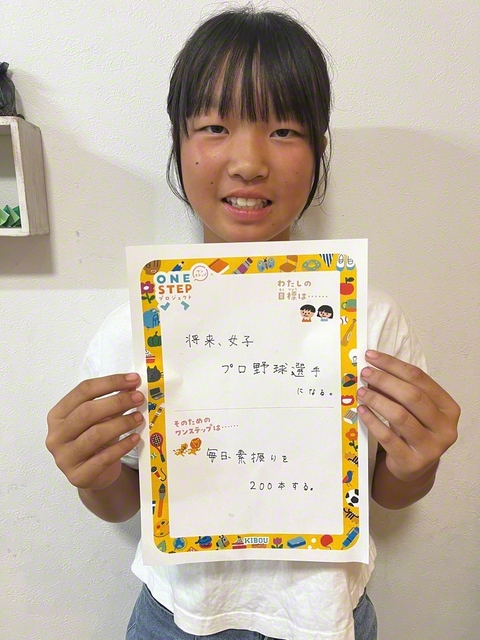 ONE
STEP
プロジェクト
わたしの
目標は……
将来、女子
プロ野球選手
になる。
そのための
ワンステップは……
毎日、素振りを
200本する。
KIBOU